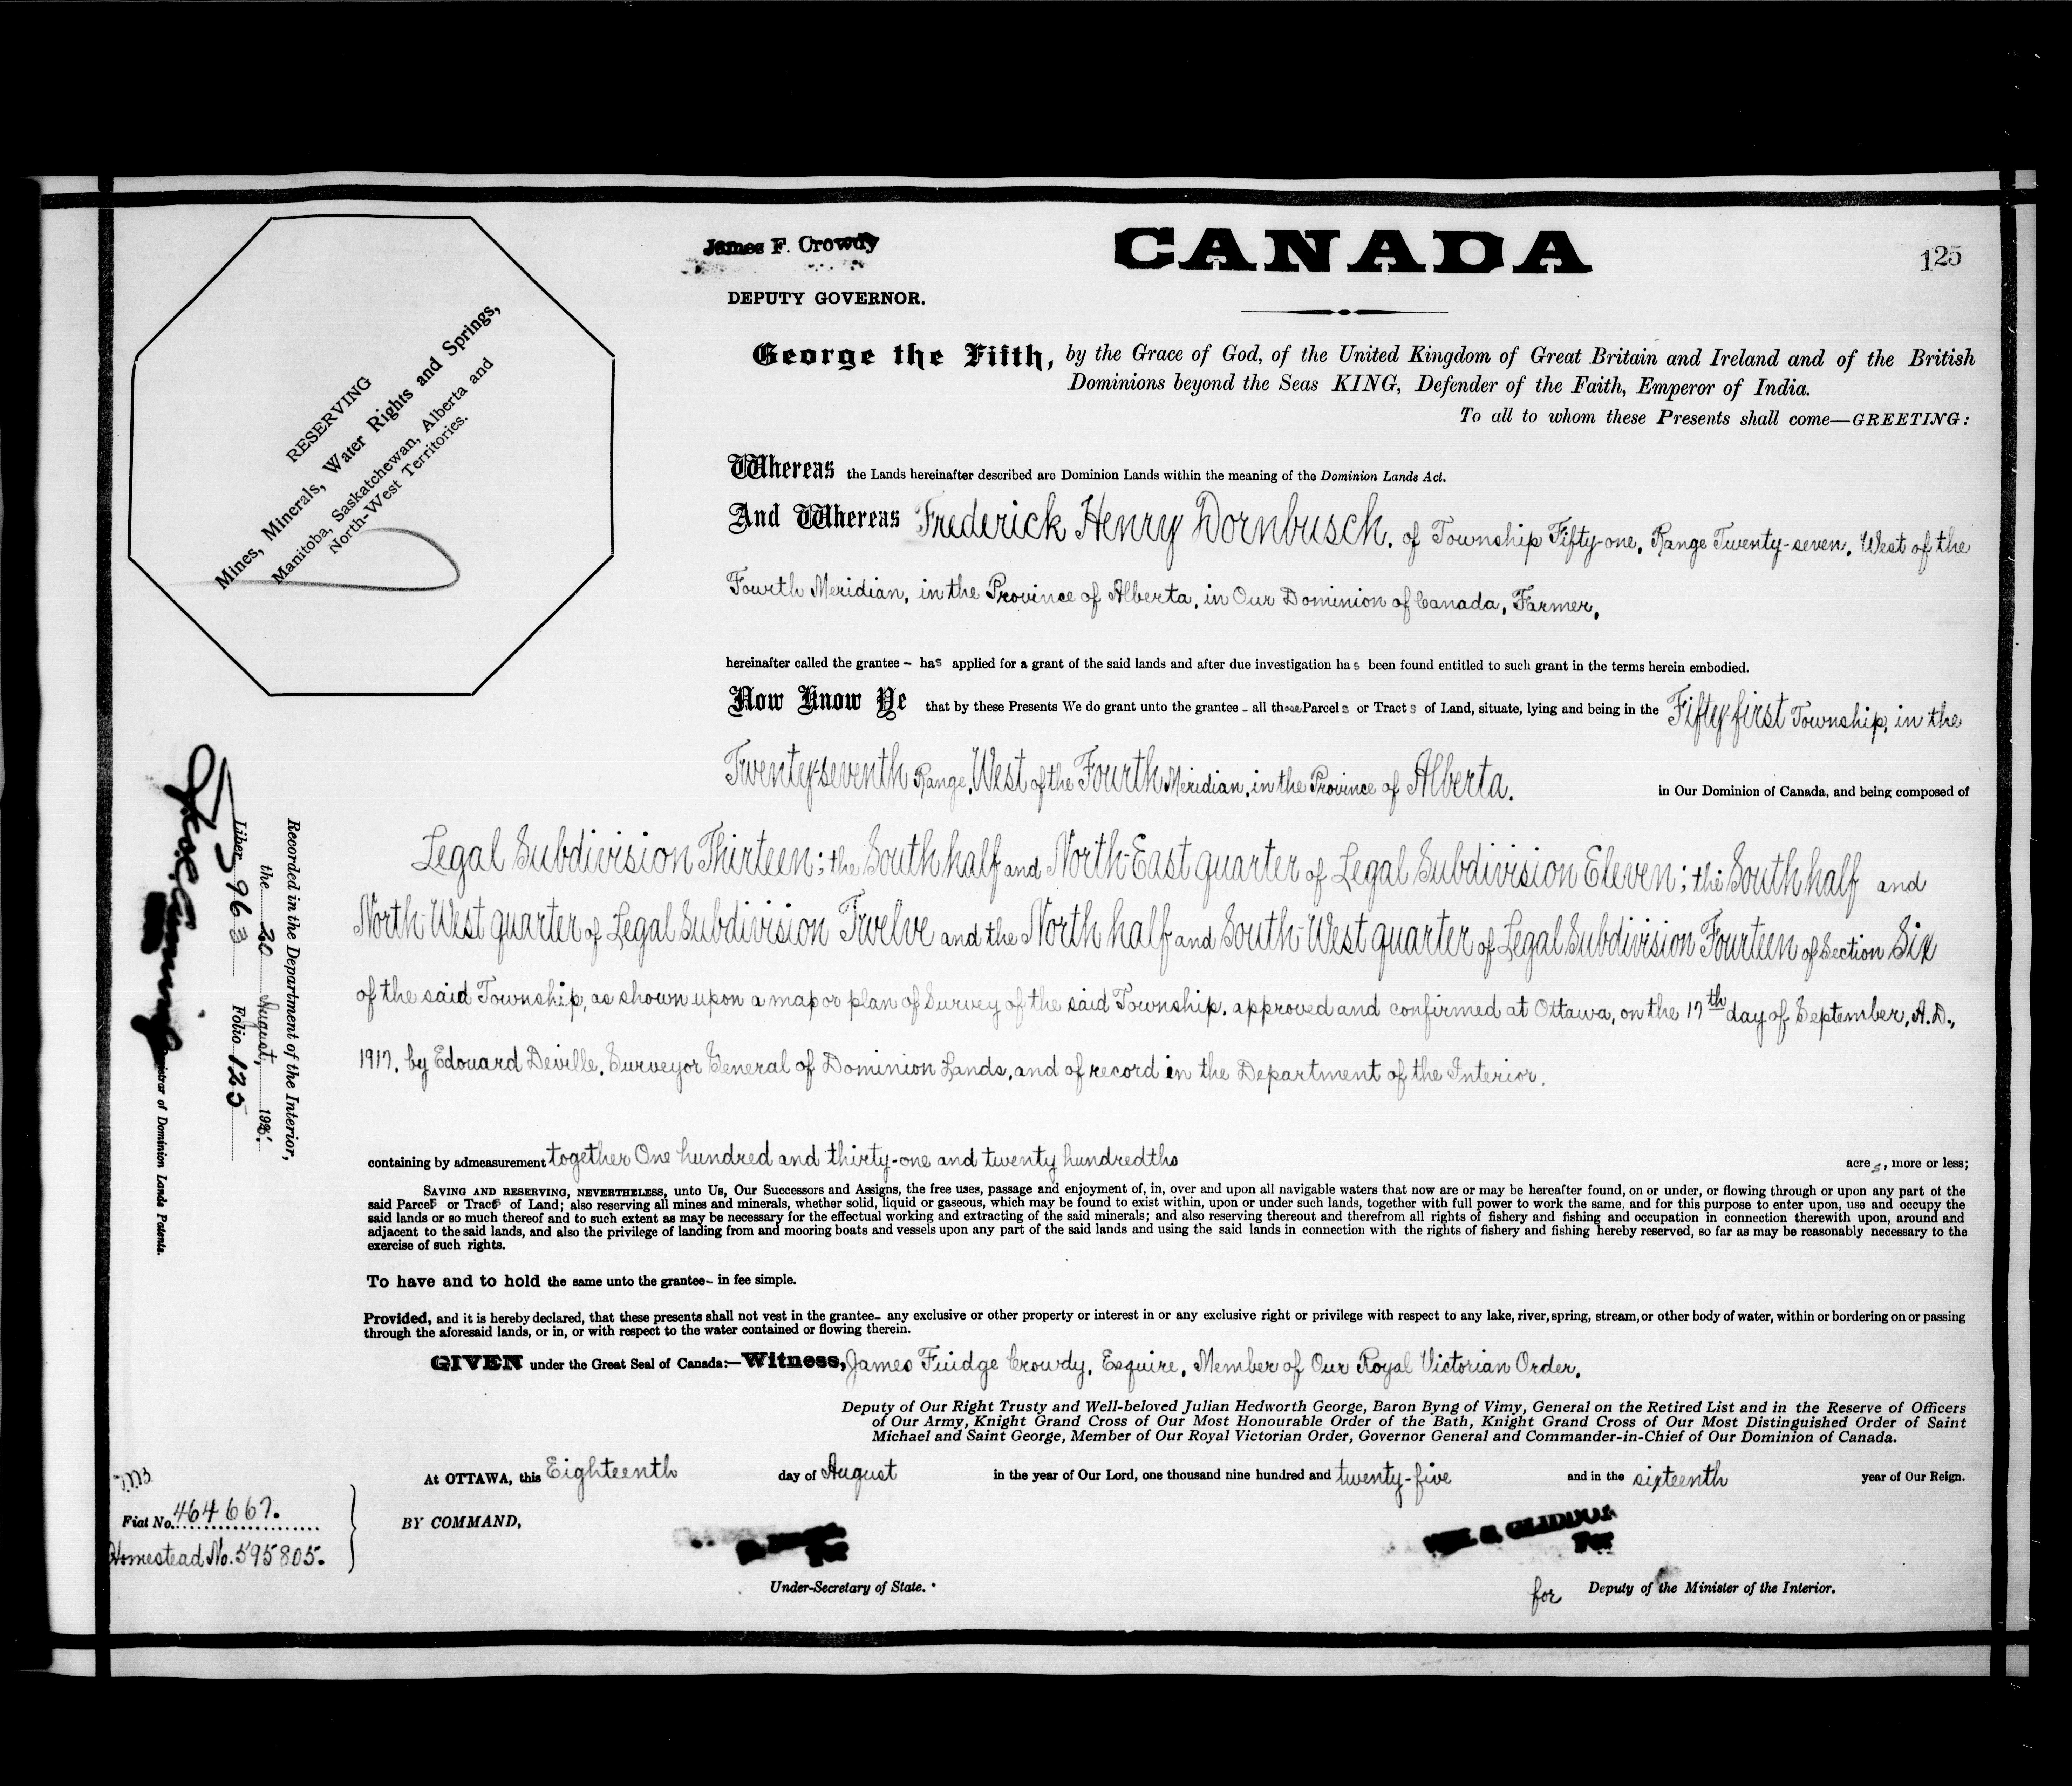 James F. Crowdy
DEPUTY GOVERNOR.
CANADA
125
RESERVING
Mines, Minerals, Water Rights and Springs,
Manitoba, Saskatchewan, Alberta and
North-West Territories.
George the Fifth, by the Grace of God, of the United Kingdom of Great Britain and Ireland and of the British
Dominions beyond the Seas KING, Defender of the Faith, Emperor of India.
To all to whom these Presents shall come—GREETING:
Whereas the Lands hereinafter described are Dominion Lands within the meaning of the Dominion Lands Act.
And Whereas Frederick Henry Dornbusch, of Township Fifty-one, Range Twenty-seven, West of the
Fourth Meridian, in the Province of Alberta, in Our Dominion of Canada, Farmer,
hereinafter called the grantee - has applied for a grant of the said lands and after due investigation has been found entitled to such grant in the terms herein embodied.
Now Know Ye that by these Presents We do grant unto the grantee - all those Parcels or Tracts of Land, situate, lying and being in the Fifty-first Township, in the
Twenty-seventh Range, West of the Fourth Meridian, in the Province of Alberta. in Our Dominion of Canada, and being composed of
Legal Subdivision Thirteen; the South half and North-East quarter of Legal Subdivision Eleven; the South half and
North-West quarter of Legal Subdivision Twelve and the North half and South-West quarter of Legal Subdivision Fourteen of Section Six
of the said Township, as shown upon a map or plan of Survey of the said Township, approved and confirmed at Ottawa, on the 17th day of September, A.D.,
1917, by Edouard Deville, Surveyor General of Dominion Lands, and of record in the Department of the Interior.
containing by admeasurement together One hundred and thirty-one and twenty hundredths acres, more or less;
SAVING AND RESERVING, NEVERTHELESS, unto Us, Our Successors and Assigns, the free uses, passage and enjoyment of, in, over and upon all navigable waters that now are or may be hereafter found, on or under, or flowing through or upon any part of the
said Parcels or Tracts of Land; also reserving all mines and minerals, whether solid, liquid or gaseous, which may be found to exist within, upon or under such lands, together with full power to work the same, and for this purpose to enter upon, use and occupy the
said lands or so much thereof and to such extent as may be necessary for the effectual working and extracting of the said minerals; and also reserving thereout and therefrom all rights of fishery and fishing and occupation in connection therewith upon, around and
adjacent to the said lands, and also the privilege of landing from and mooring boats and vessels upon any part of the said lands and using the said lands in connection with the rights of fishery and fishing hereby reserved, so far as may be reasonably necessary to the
exercise of such rights.
To have and to hold the same unto the grantee- in fee simple.
Provided, and it is hereby declared, that these presents shall not vest in the grantee- any exclusive or other property or interest in or any exclusive right or privilege with respect to any lake, river, spring, stream, or other body of water, within or bordering on or passing
through the aforesaid lands, or in, or with respect to the water contained or flowing therein.
GIVEN under the Great Seal of Canada:—Witness, James Fuidge Crowdy, Esquire, Member of Our Royal Victorian Order,
Deputy of Our Right Trusty and Well-beloved Julian Hedworth George, Baron Byng of Vimy, General on the Retired List and in the Reserve of Officers
of Our Army, Knight Grand Cross of Our Most Honourable Order of the Bath, Knight Grand Cross of Our Most Distinguished Order of Saint
Michael and Saint George, Member of Our Royal Victorian Order, Governor General and Commander-in-Chief of Our Dominion of Canada.
At OTTAWA, this Eighteenth day of August in the year of Our Lord, one thousand nine hundred and twenty-five and in the sixteenth year of Our Reign.
BY COMMAND,
For
Under-Secretary of State.
For
for Deputy of the Minister of the Interior.
Fiat No. 464667.
Homestead No. 595805.
Recorded in the Department of the Interior,
the 20 August, 1925.
Liber 963 Folio 125
istrar of Dominion Lands Patents.